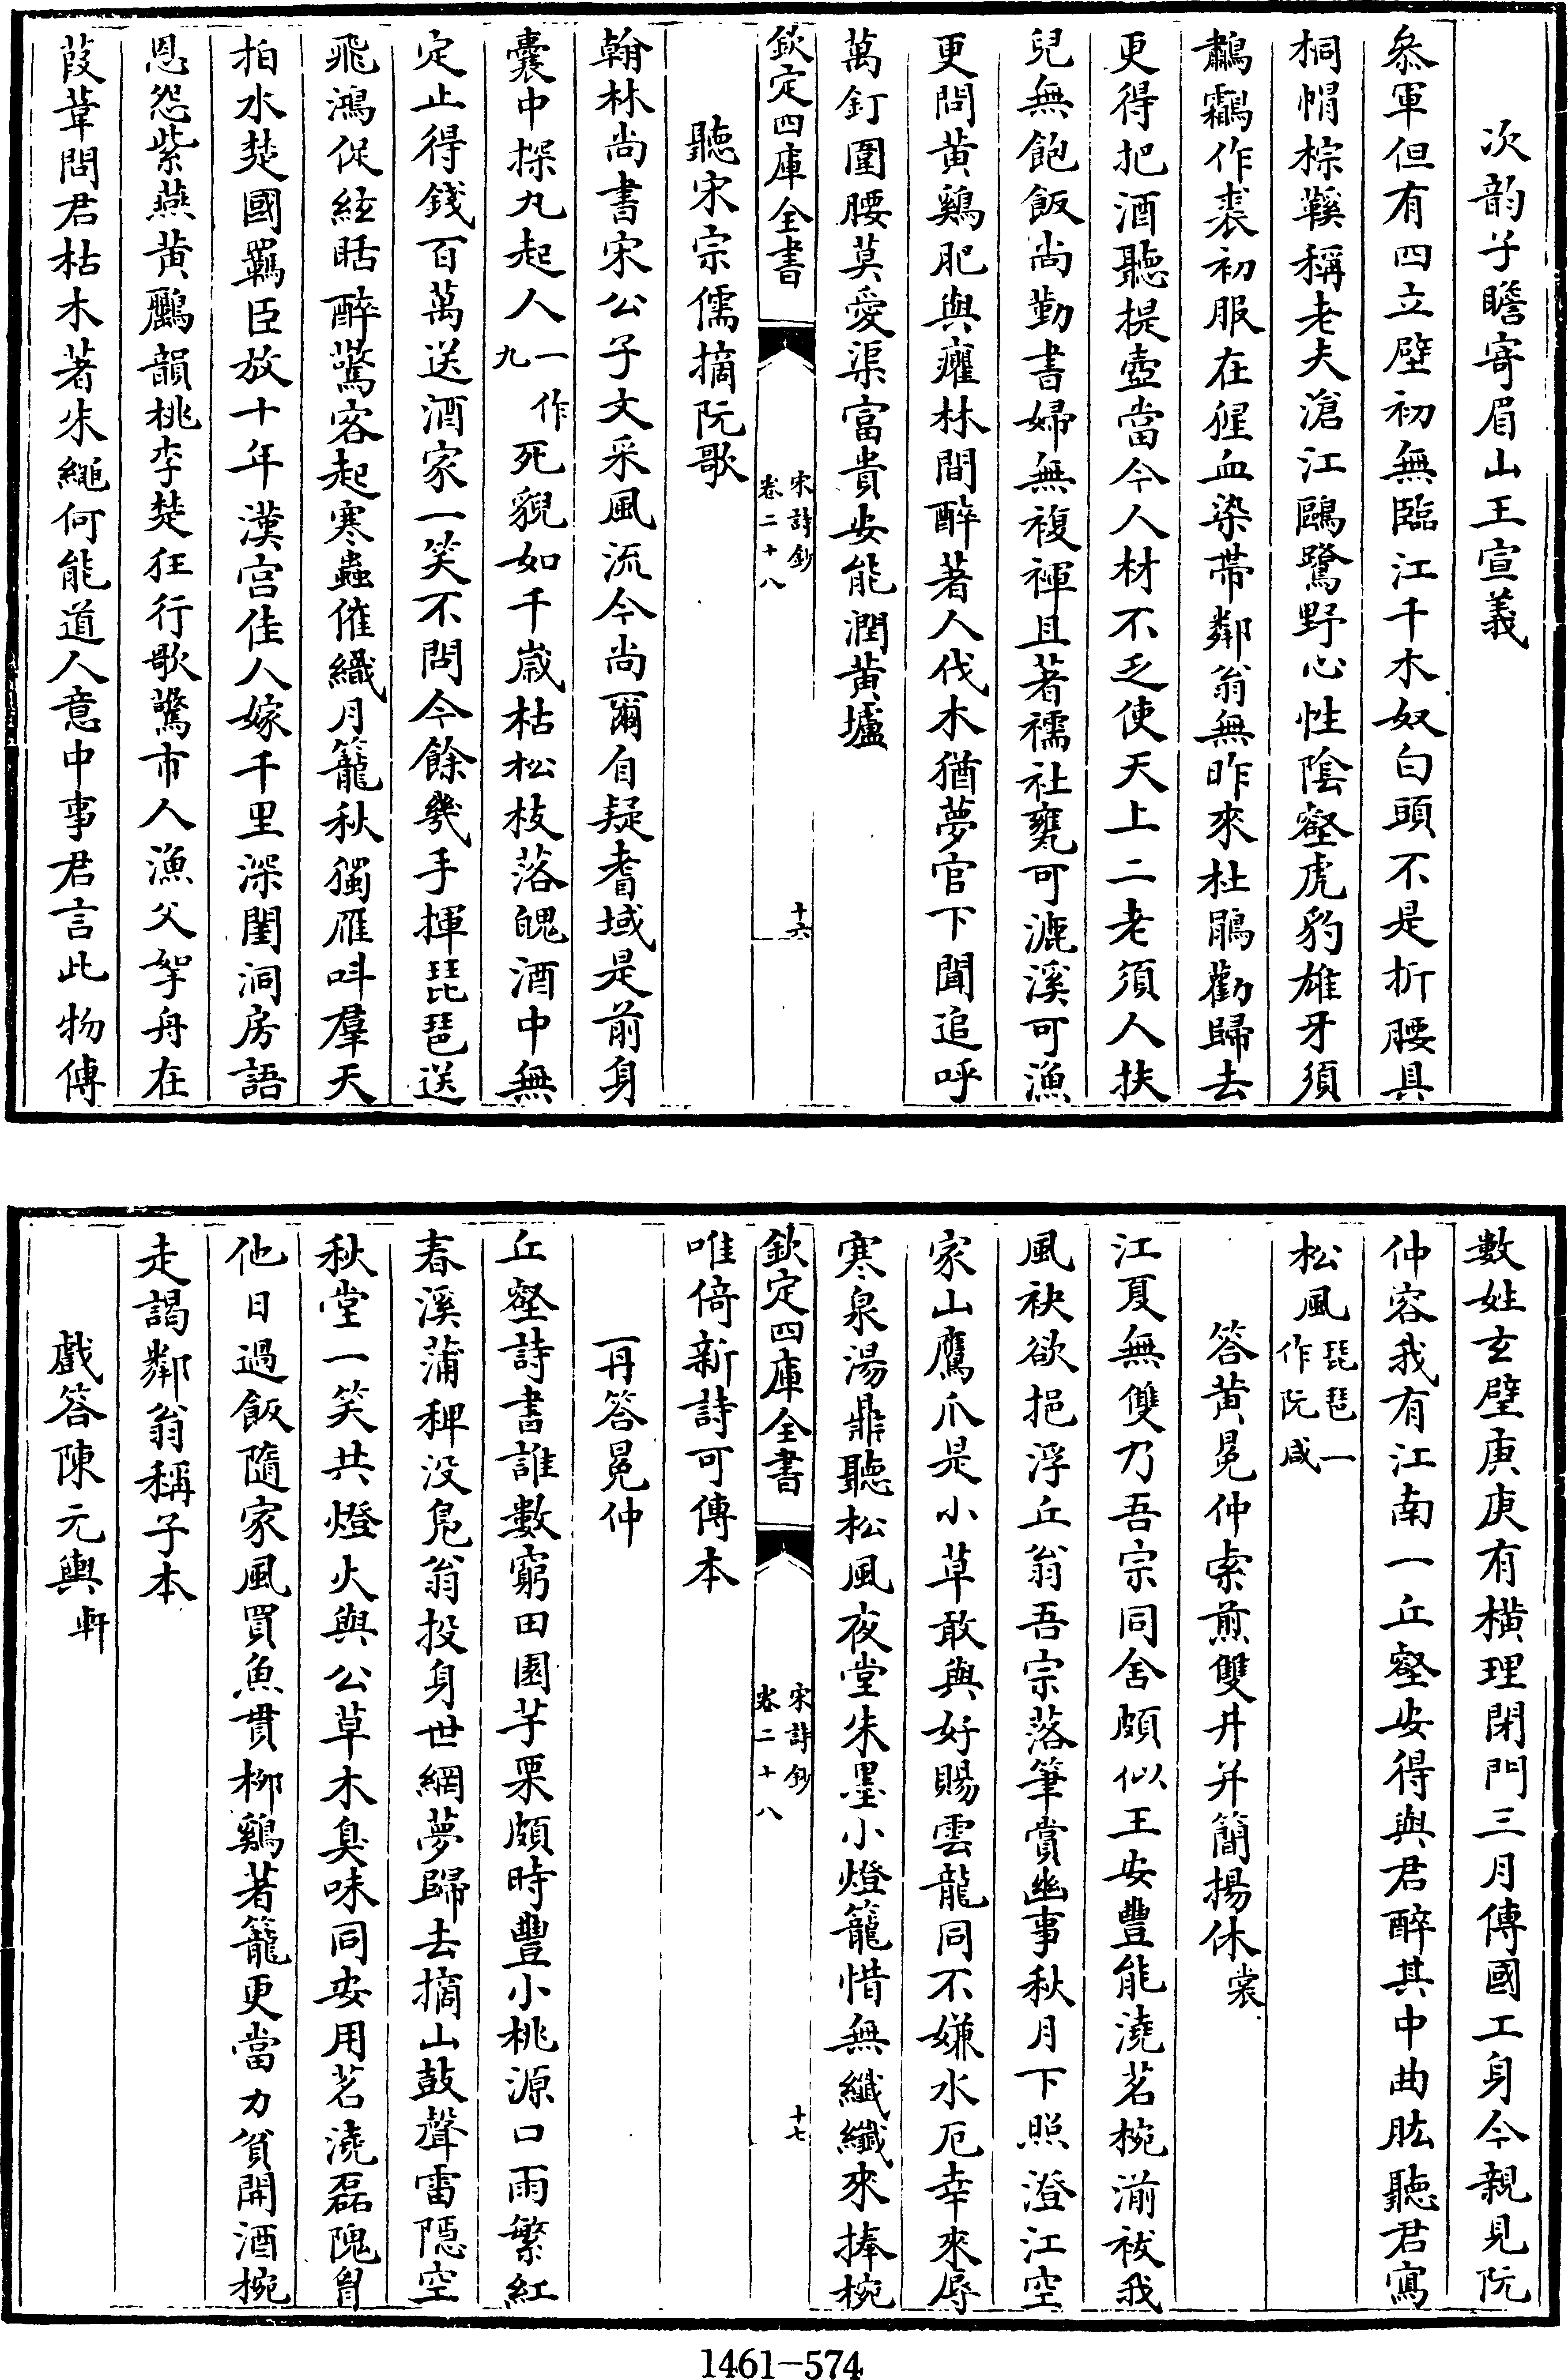 次韵子瞻寄眉山王宣義
叅軍但有四立壁初無臨江千木奴白頭不是折腰具
桐帽棕鞵稱老夫滄江鷗鷺野心性隂壑虎豹雄牙須
鷫鸘作裘初服在猩血染帶鄰翁無昨來杜鵑勸歸去
更得把酒聽提壺當今人材不乏使天上二老須人扶
兒無飽飯尚勤書婦無複褌且著襦社甕可漉溪可漁
更問黄鷄肥與癯林間醉著人伐木猶夢官下聞追呼
萬釘圍腰莫愛渠富貴安能潤黄壚
欽定四庫全書
宋詩鈔
卷二十八
十六
聽宋宗儒摘阮歌
翰林尚書宋公子文采風流今尚爾自疑耆域是前身
囊中探丸起人一作九死貌如千歲枯松枝落魄酒中無
定止得錢百萬送酒家一笑不問今餘幾手揮琵琶送
飛鴻促絃聒醉驚客起寒蟲催織月籠秋獨雁叫羣天
拍水楚國羈臣放十年漢宫佳人嫁千里深閨洞房語
恩怨紫燕黄鸝韻桃李楚狂行歌驚市人漁父拏舟在
葭葦問君枯木著朱繩何能道人意中事君言此物傳
數姓玄璧庚庚有横理閉門三月傳國工身今親見阮
仲容我有江南一丘壑安得與君醉其中曲肱聽君寫
松風琵琶一作阮咸
答黄冕仲索煎雙井并簡揚休裳
江夏無雙乃吾宗同舍頗似王安豐能澆茗椀湔祓我
風袂欲挹浮丘翁吾宗落筆賞幽事秋月下照澄江空
家山鷹爪是小草敢與好賜雲龍同不嫌水厄幸來辱
寒泉湯鼎聽松風夜堂朱墨小燈籠惜無纖纖來捧椀
欽定四庫全書
宋詩鈔
卷二十八
十七
唯倚新詩可傳本
再答冕仲
丘壑詩書誰數窮田園芋栗頗時豐小桃源口雨繁紅
春溪蒲稗没鳬翁投身世網夢歸去摘山鼓聲雷隱空
秋堂一笑共燈火與公草木臭味同安用茗澆磊隗胷
他日過飯隨家風買魚貫柳鷄著籠更當力貧開酒椀
走謁鄰翁稱子本
戲答陳元輿軒
1461—574